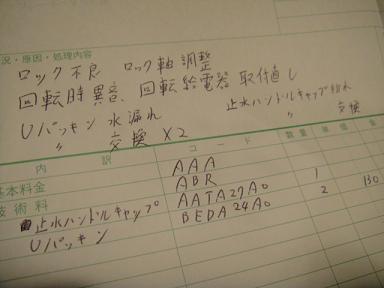 況・原因・処理内容
ロック不良 ロック軸調整
回転時異音、回転給電器 取付直し
Uパッキン 水漏れ 止水ハンドルキャップ割れ
〃 交換 ×2 〃 交換
内 訳 コード 数量 単価 金
基本料金 AAA
技術料 ABR
止水ハンドルキャップ AATA27A0 1
Uパッキン BEDA24A0 2 130